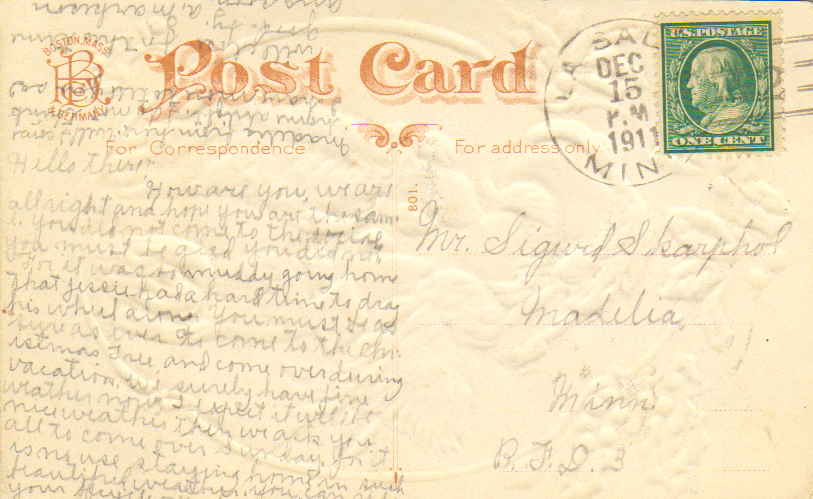 BOSTON, MASS.
B
GERMANY
Post Card
For Correspondence
For address only
801.
LA SAL
DEC
15
P.M.
1911
MIN
U.S. POSTAGE
ONE CENT
Mr. Sigurd Skarphol
Madelia,
Minn.
R.F.D. 3
Hello there!
How are you, we are
allright and hope you are the sam-
e. You did not come to the social
You must be glad you did not
For it was so muddy going home
that Jessie had a hard time to drag
his wheel alone. You must be
sure as ever to come to the Chr-
istmas Tree, and come over during
vacation. We surely have fine
weather now I expect it will be
nice weather then we ask you
all to come over Sunday for it
is no use staying home in such
beautiful weather. You can
your